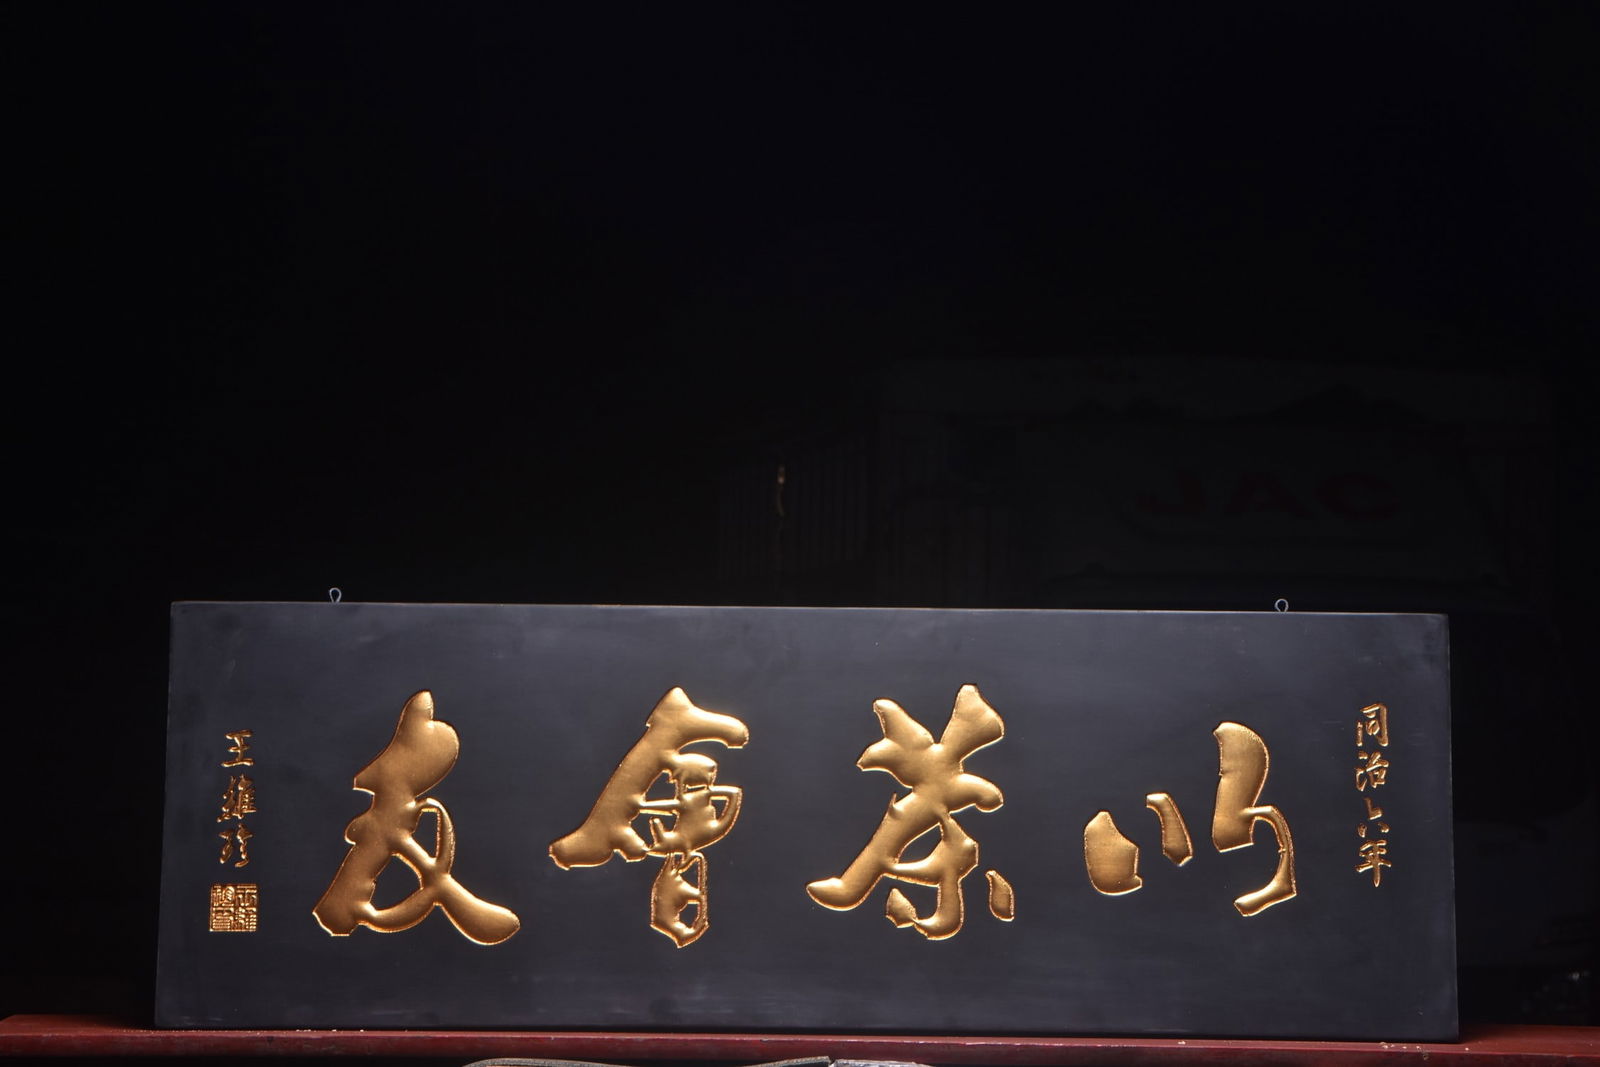 同治六年
以茶會友
王維珍
JAC